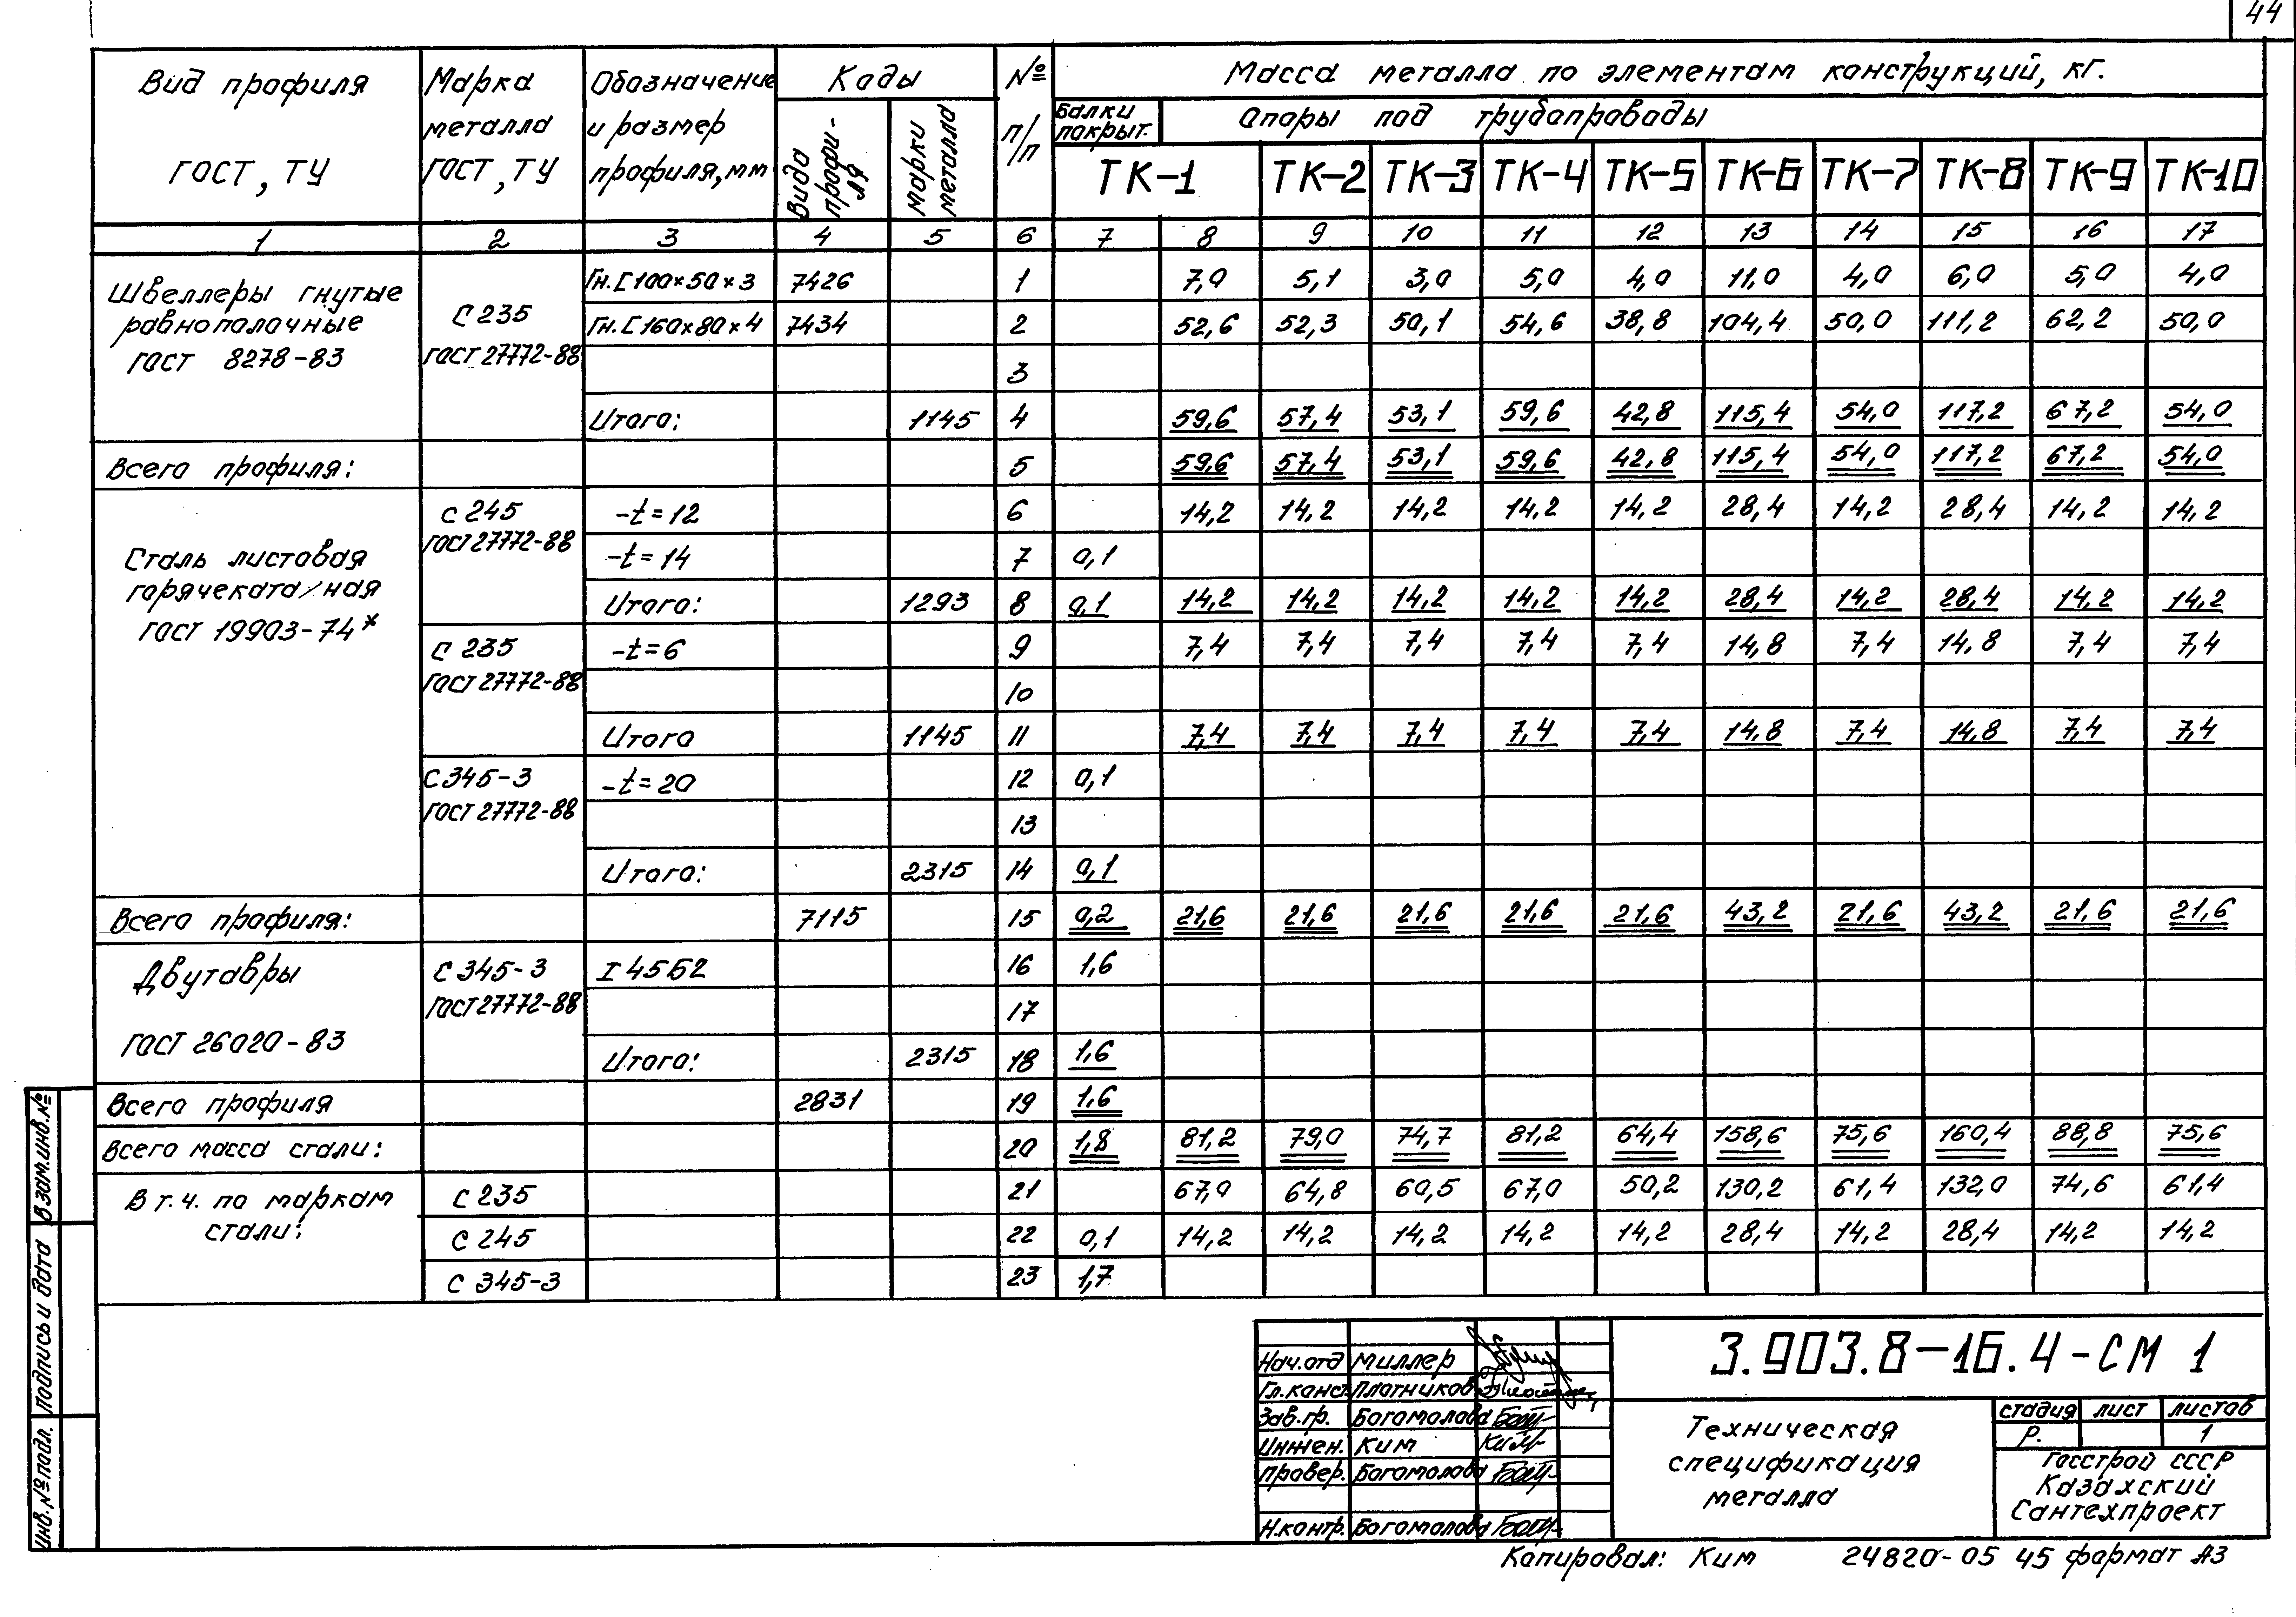 44
Вид профиля ГОСТ, ТУ
Марка металла ГОСТ, ТУ
Обозначение и размер профиля, мм
Коды
Вида профи-ля
марки металла
№ п/п
Масса металла по элементам конструкций, кг.
Балки покрыт.
Опоры под трубопроводы
ТК-1 ТК-2 ТК-3 ТК-4 ТК-5 ТК-6 ТК-7 ТК-8 ТК-9 ТК-10
1 2 3 4 5 6 7 8 9 10 11 12 13 14 15 16 17
Швеллеры гнутые
равнополочные
ГОСТ 8278-83
С 235
ГОСТ 27772-88
Гн.[100×50×3 7426 1 7,0 5,1 3,0 5,0 4,0 11,0 4,0 6,0 5,0 4,0
Гн.[160×80×4 7434 2 52,6 52,3 50,1 54,6 38,8 104,4 50,0 111,2 62,2 50,0
3
Итого: 1145 4 59,6 57,4 53,1 59,6 42,8 115,4 54,0 117,2 67,2 54,0
Всего профиля: 5 59,6 57,4 53,1 59,6 42,8 115,4 54,0 117,2 67,2 54,0
Сталь листовая
горячеката/ная
ГОСТ 19903-74*
С 245
ГОСТ 27772-88
-t=12 6 14,2 14,2 14,2 14,2 14,2 28,4 14,2 28,4 14,2 14,2
-t=14 7 0,1
Итого: 1293 8 0,1 14,2 14,2 14,2 14,2 14,2 28,4 14,2 28,4 14,2 14,2
С 235
ГОСТ 27772-88
-t=6 9 7,4 7,4 7,4 7,4 7,4 14,8 7,4 14,8 7,4 7,4
10
Итого 1145 11 7,4 7,4 7,4 7,4 7,4 14,8 7,4 14,8 7,4 7,4
С 345-3
ГОСТ 27772-88
-t=20 12 0,1
13
Итого: 2315 14 0,1
Всего профиля: 7115 15 0,2 21,6 21,6 21,6 21,6 21,6 43,2 21,6 43,2 21,6 21,6
Двутавры
ГОСТ 26020-83
С 345-3
ГОСТ 27772-88
I 45Б2 16 1,6
17
Итого: 2315 18 1,6
Всего профиля 2831 19 1,6
Всего масса стали: 20 1,8 81,2 79,0 74,7 81,2 64,4 158,6 75,6 160,4 88,8 75,6
В т.ч. по маркам
стали:
С 235 21 67,0 64,8 60,5 67,0 50,2 130,2 61,4 132,0 74,6 61,4
С 245 22 0,1 14,2 14,2 14,2 14,2 14,2 28,4 14,2 28,4 14,2 14,2
С 345-3 23 1,7
Взам.инв.№
Подпись и дата
Инв.№ подл.
Нач.отд Миллер
Гл.конст. Плотников
Зав.гр. Богомолова
Инжен. Ким Ким
Провер. Богомолова
Н.контр. Богомолова
3.903.8-16.4-СМ 1
Техническая
спецификация
металла
стадия лист листов
Р. 1
Госстрой СССР
Казахский
Сантехпроект
Копировал: Ким 24820-05 45 формат А3